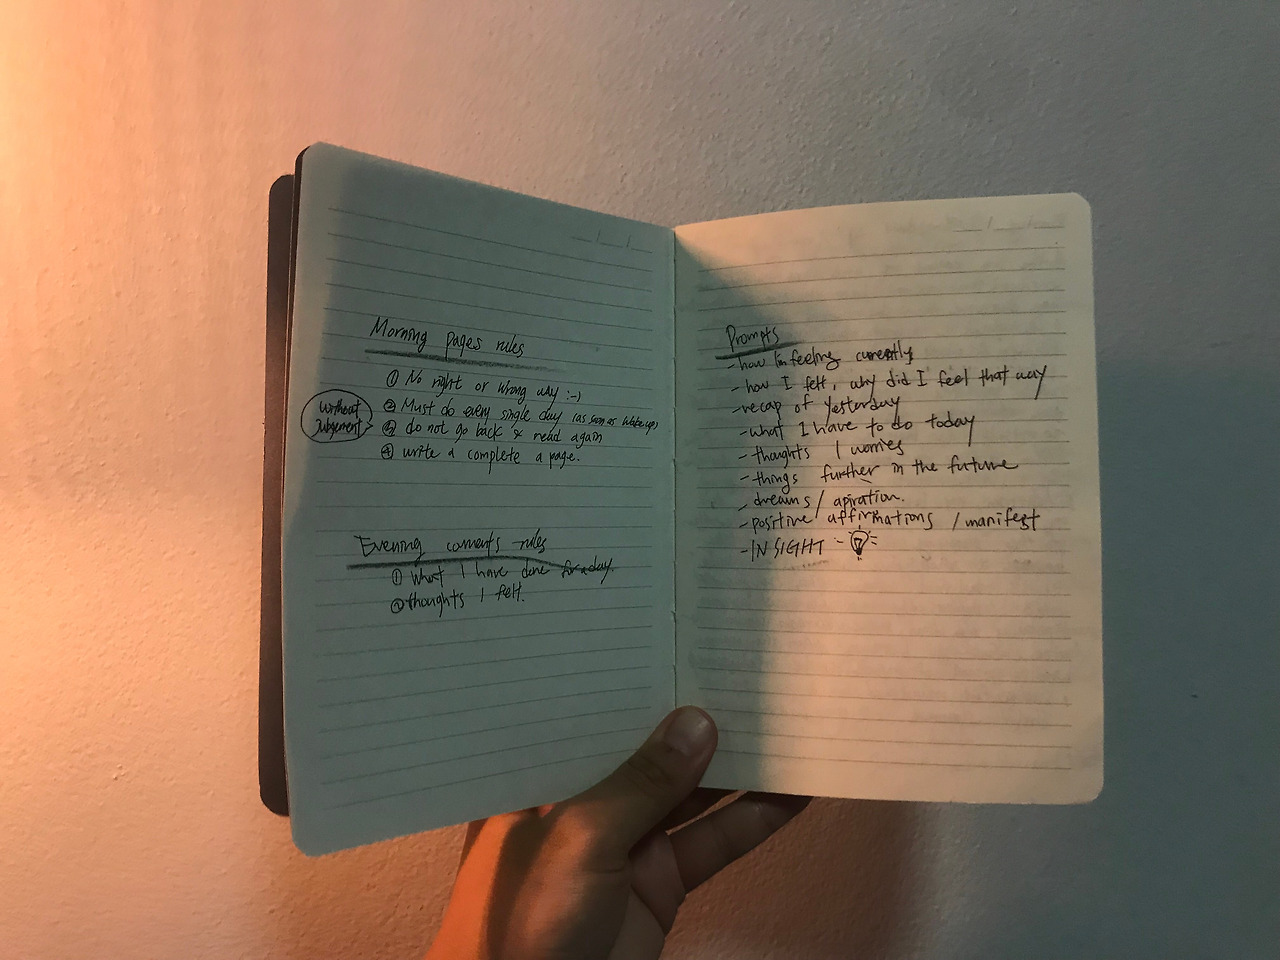 Morning pages rules
① No right or wrong way :-)
② Must do every single day (as soon as wake up)
③ do not go back & read again
④ write a complete a page.
without
judgement
Evening coments rules
① What I have done for a day.
② thoughts I felt.
Prompts
- how I'm feeling currently
- how I felt, why did I feel that way
- recap of yesterday
- what I have to do today
- thoughts / worries
- things further in the future
- dreams / apiration.
- positive affirmations / manifest
- INSIGHT